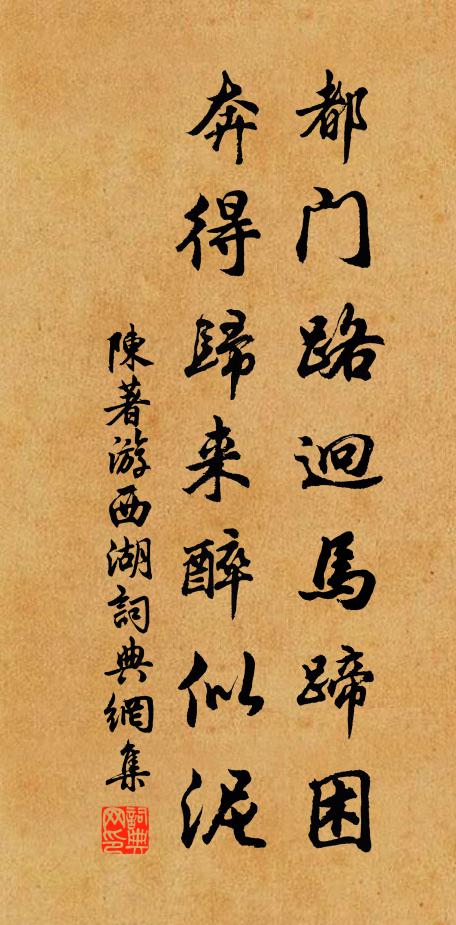 都门路迥馬蹄困
奔得歸来醉似泥
陳著游西湖詞典網集
詞典网印